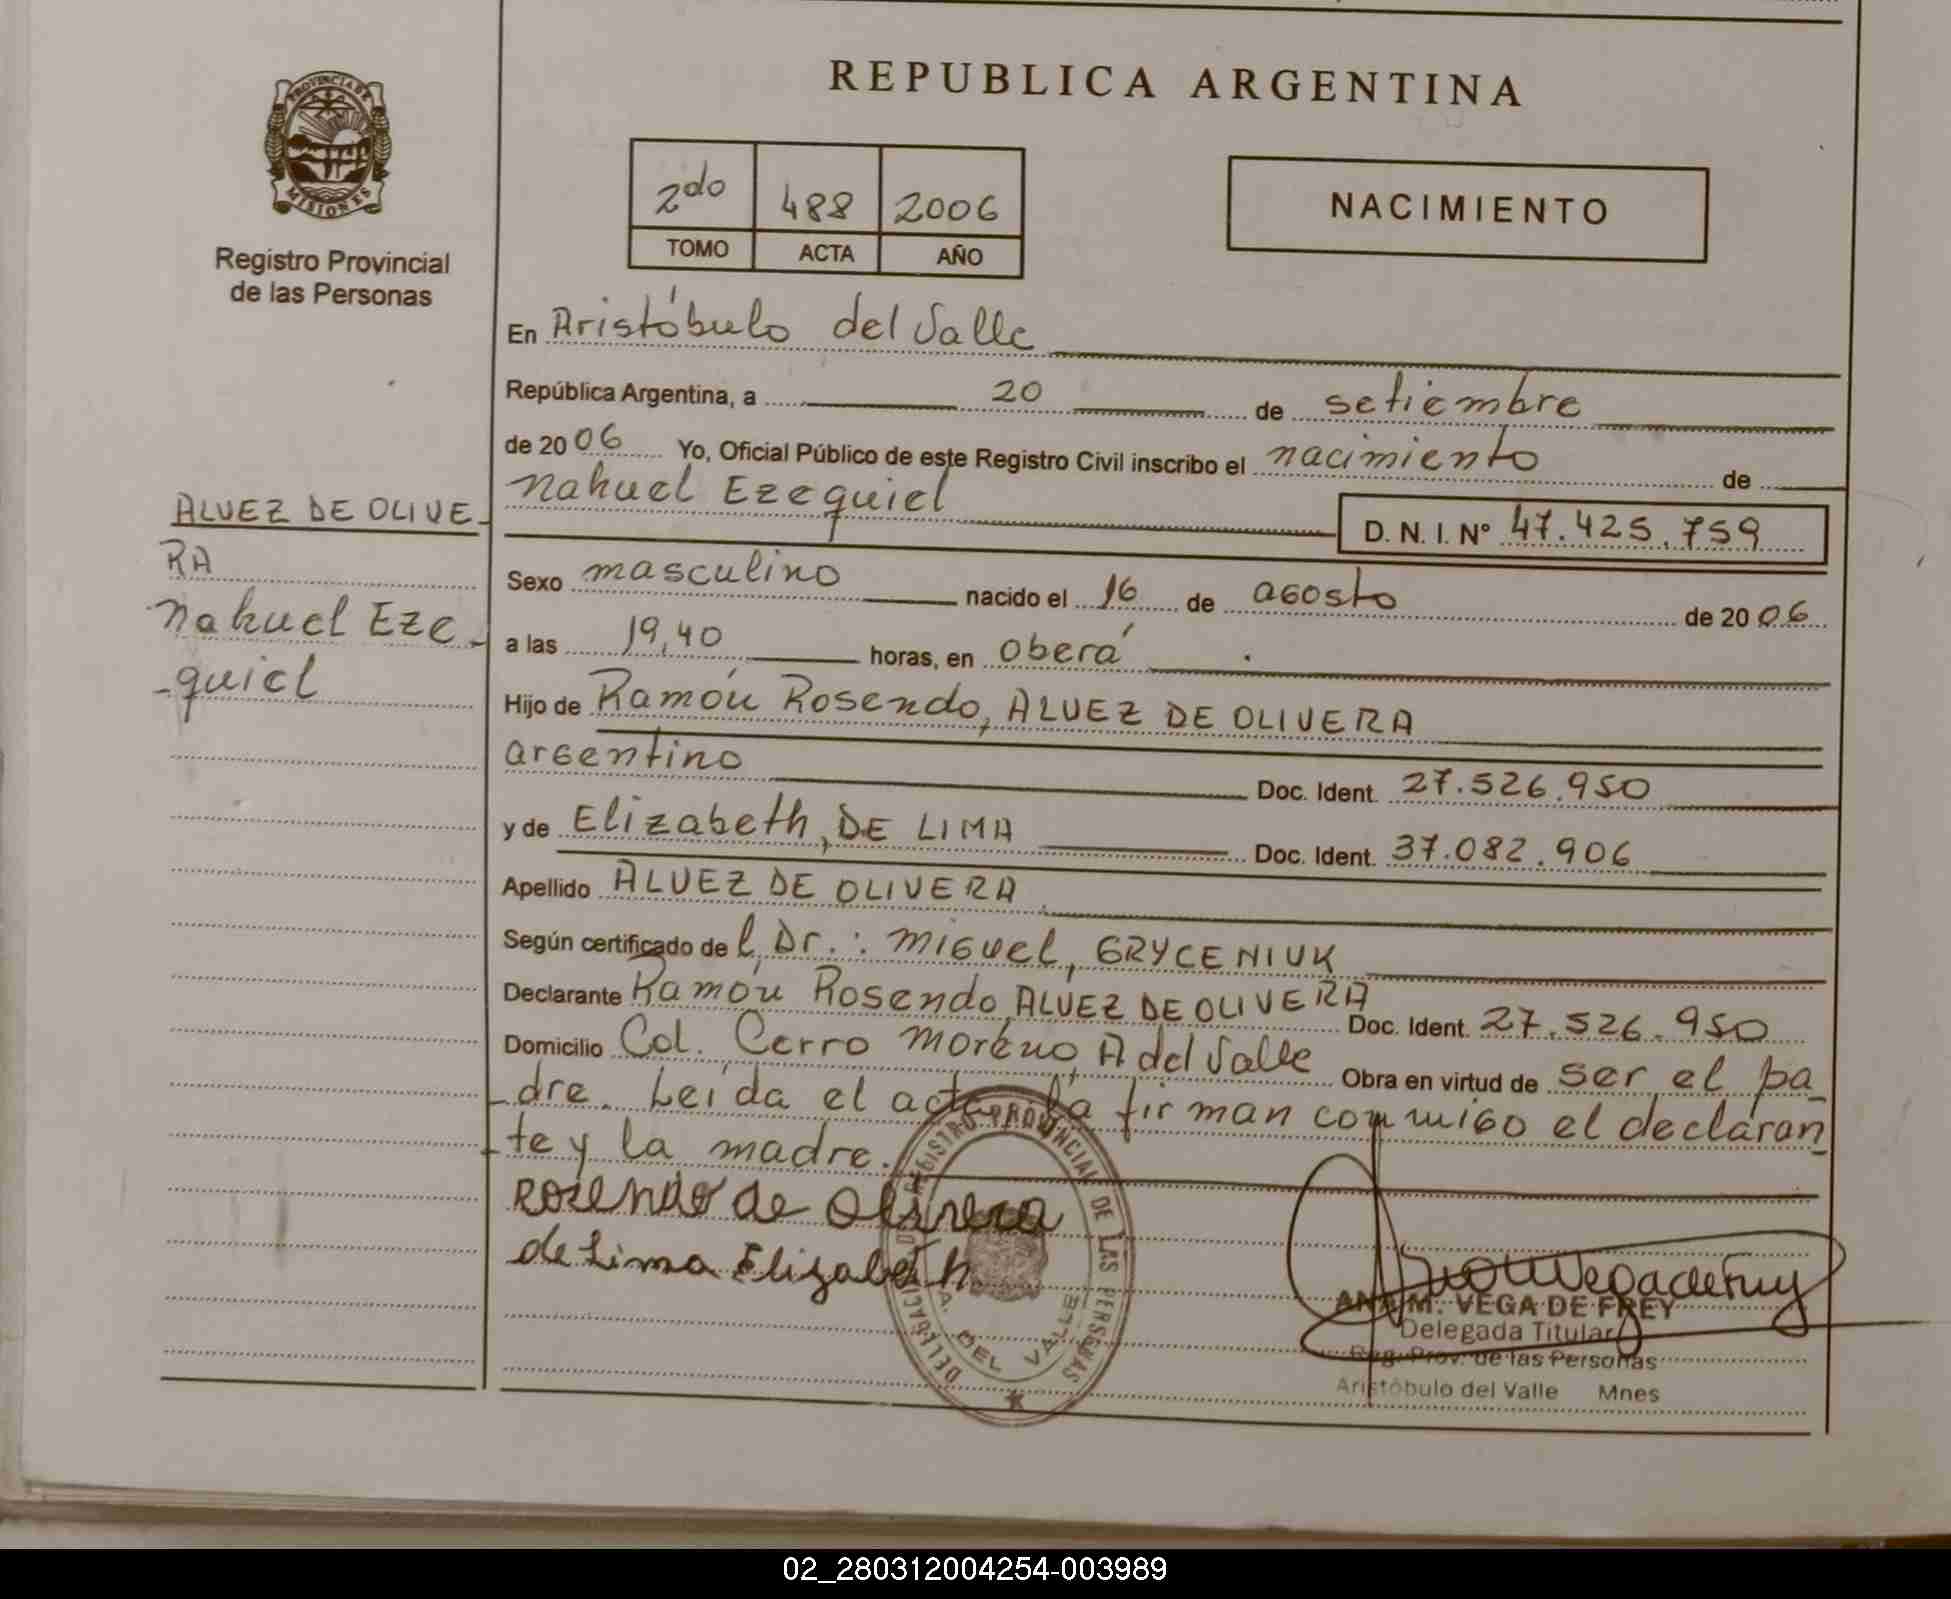 REPUBLICA ARGENTINA
PROVINCIA DE MISIONES
Registro Provincial
de las Personas
2do 488 2006
TOMO ACTA AÑO
NACIMIENTO
En Aristóbulo del Valle
República Argentina, a 20 de setiembre
de 2006 Yo, Oficial Público de este Registro Civil inscribo el nacimiento de
Nahuel Ezequiel D. N. I. Nº 47.425.759
ALVEZ DE OLIVE-
RA
Nahuel Eze-
-quiel
Sexo masculino nacido el 16 de agosto de 2006
a las 19,40 horas, en Oberá
Hijo de Ramón Rosendo, ALVEZ DE OLIVERA
argentino Doc. Ident. 27.526.950
y de Elizabeth, DE LIMA Doc. Ident. 37.082.906
Apellido ALVEZ DE OLIVERA
Según certificado de l, Dr.: Miguel, GRYCENIUK
Declarante Ramón Rosendo, ALVEZ DE OLIVERA Doc. Ident. 27.526.950
Domicilio Col. Cerro Moreno, A del Valle Obra en virtud de ser el pa-
-dre. Leída el acta la firman conmigo el declaran-
-te y la madre.
Rosendo de Olivera
de Lima Elizabeth
DELEGACION DE REGISTRO PROVINCIAL DE LAS PERSONAS
A. DEL VALLE
ANA M. VEGA DE FREY
Delegada Titular
Reg. Prov. de las Personas
Aristóbulo del Valle Mnes
02_280312004254-003989